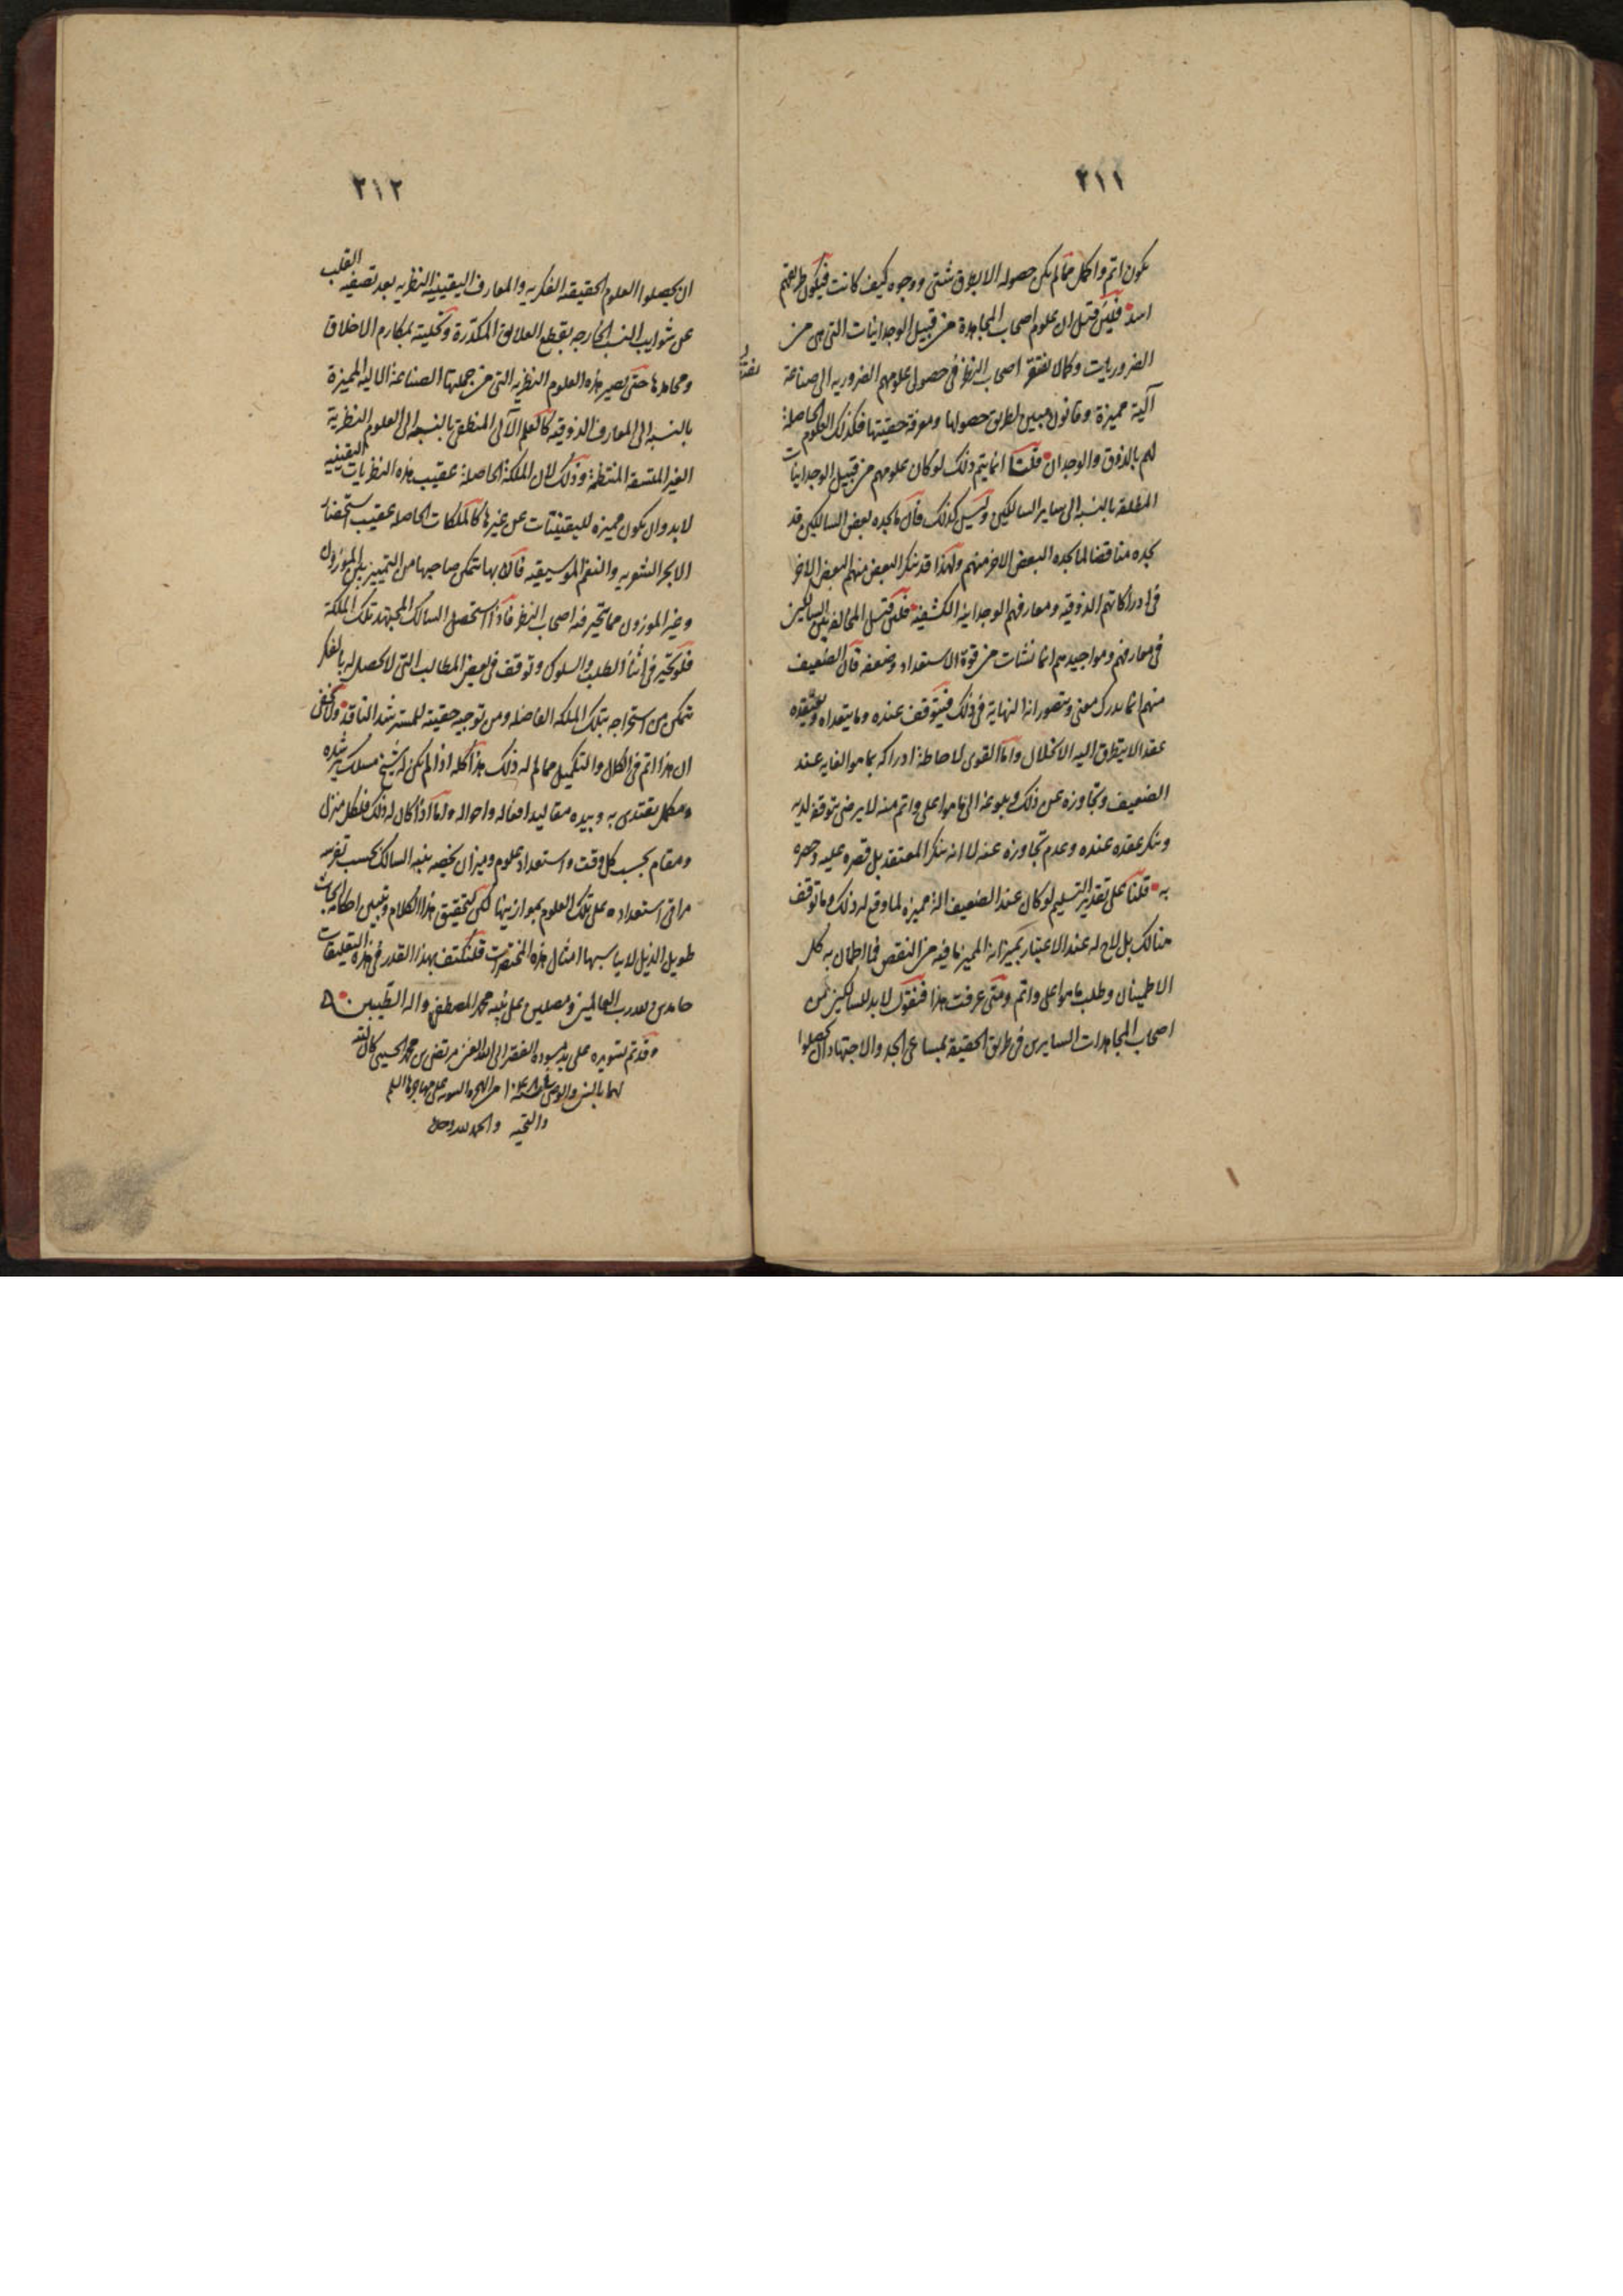 ٢١١
يكون اتم واكمل مما لم يكن حصوله الا بطرق شتى ووجوه كيف كانت فيكون طريقهم
اسد فلئن قيل ان علوم اصحاب المجاهدة من قبيل الوجدانيات التى هى من
الضروريات وكما لا يفتقر اصحاب النظر فى حصول علومهم الضروريه الى صناعة
آلية مميزة وقانون مبين لطريق حصولها ومعرفة حقيتها فكذلك العلوم الحاصلة
لهم بالذوق والوجدان قلنا انما يتم ذلك لو كان علومهم من قبيل الوجدانيات
المطلقة بالنسبة الى ساير السالكين وليس كذلك فان ما يجده بعض السالكين قد
يجده مناقضا لما يجده البعض الاخر منهم ولهذا قد ينكر البعض منهم البعض الاخر
فى ادراكاتهم الذوقيه ومعارفهم الوجدانية الكشفية فلئن قيل المخالفة بين السالكين
فى معارفهم ومواجيدهم انما نشات من قوة الاستعداد وضعفه فان الضعيف
منهم انما يدرك معنى ويتصور انه النهاية فى ذلك فيتوقف عنده وما يتعداه ويعتقده
عقدا لا يتطرق اليه الانحلال واما القوى لاحاطة ادراكه بما هو الغايه عند
الضعيف وتجاوزه عن ذلك وبلوغه الى ما هو اعلى واتم منه لا يرضى بتوقفه لديه
وينكر عقده عنده وعدم تجاوزه عنه لا انه ينكر المعتقد بل قصره عليه وحصره
به قلنا على تقدير التسليم لو كان عند الضعيف الة مميزة لما وقع له ذلك وما توقف
هنالك بل لاح له عند الاعتبار بميزانه المميز ما فيه من النقص فما اطمان به كل
الاطمينان وطلب ما هو اعلى واتم ومتى عرفت هذا فنقول لا بد للسالكين من
اصحاب المجاهدات السايرين فى طريق الحقيقة بمساعى الجد والاجتهاد ان يحصلوا
٢١٢
ان يحصلوا العلوم الحقيقية الفكريه والمعارف اليقينية النظريه بعد تصفيه القلب
عن شوايب النسب الخارجه بقطع العلايق المكدرة وتحليته بمكارم الاخلاق
ومحامدها حتى يصير هذه العلوم النظريه التى من جملتها الصناعة الالية المميزة
بالنسبة الى المعارف الذوقيه كالعلم الآلى المنطقى بالنسبة الى العلوم النظرية
الغير المتسقة المنتظمة وذلك لان الملكة الحاصلة عقيب هذه النظريات اليقينيه
لا بد وان يكون مميزه لليقينيات عن غيرها كالملكات الحاصله عقيب استحضار
الابحر الشعريه والنغم الموسيقيه فان بها يتمكن صاحبها من التمييز بين الموزون
وغير الموزون مما يتحير فيه اصحاب النظر فاذا استحصل السالك المجتهد تلك الملكة
فلو تحير فى اثناء الطلب والسلوك وتوقف فى بعض المطالب التى لا تحصل له بالفكر
تمكن من استخراجه بتلك الملكه الفاضله ومن توجيه حقيته للمسترشد الناقد ولا يخفى
ان هذا اتم فى الكمال والتكميل مما لم له ذلك هذا كله اذا لم يكن له شيخ مسلك يرشده
ومكمل يقتدى به وبيده مقاليد افعاله واحواله واما اذا كان له ذلك فلكل منزل
ومقام بحسب كل وقت واستعداد علوم وميزان يخصه ينبه السالك بحسب تفرسه
مراقى استعداده على تلك العلوم بموازينها لكن لتحقيق هذا الكلام وتبيين احكامه ابحاث
طويل الذيل لا يناسبها امثال هذه المختصرات فلنكتف بهذا القدر فى هذه التعليقات
حامدين لله رب العالمين ومصلين على نبيه محمد المصطفى واله الطيبين
وقد تم تسويده على يد مسوده الفقير الى الله الغنى مرتضى بن محمد الحسينى كان الله
والتحيه والحمد لله وحده